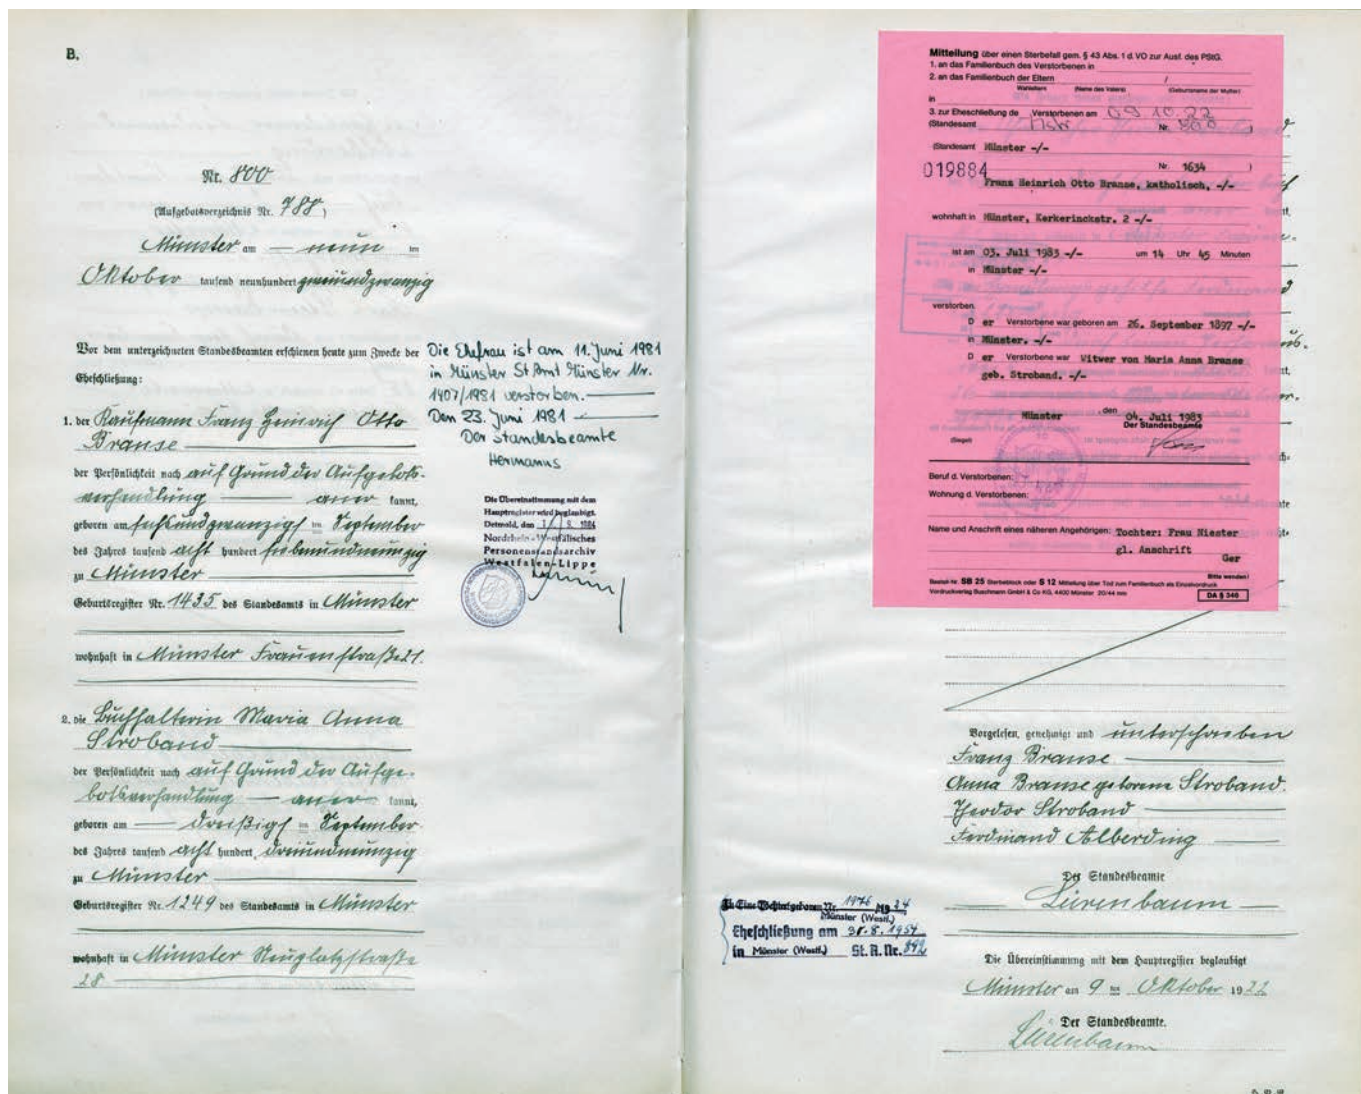 B.
Nr. 800
(Aufgebotsverzeichnis Nr. 788)
Münster am — neun ten
Oktober tausend neunhundert zweiundzwanzig
Vor dem unterzeichneten Standesbeamten erschienen heute zum Zwecke der
Eheschließung:
1. der Kaufmann Franz Heinrich Otto
Branse
der Persönlichkeit nach auf Grund der Aufgebots-
verhandlung — aner kannt,
geboren am sechsundzwanzigs ten September
des Jahres tausend acht hundert siebenundneunzig
zu Münster
Geburtsregister Nr. 1435 des Standesamts in Münster
wohnhaft in Münster Frauenstraße 21.
2. die Buchhalterin Maria Anna
Stroband
der Persönlichkeit nach auf Grund der Aufge-
botsverhandlung — aner kannt,
geboren am — dreißigs ten September
des Jahres tausend acht hundert dreiundneunzig
zu Münster
Geburtsregister Nr. 1249 des Standesamts in Münster
wohnhaft in Münster Neuplatzstraße
28
Die Ehefrau ist am 11. Juni 1981
in Münster St.Amt Münster Nr.
1407/1981 verstorben.
Den 23. Juni 1981
Der Standesbeamte
Hermanns
Die Übereinstimmung mit dem
Hauptregister wird beglaubigt.
Detmold, den
Nordrhein-Westfälisches
Personenstandsarchiv
Westfalen-Lippe
Mitteilung über einen Sterbefall gem. § 43 Abs. 1 d. VO zur Ausf. des PStG.
1. an das Familienbuch des Verstorbenen in
2. an das Familienbuch der Eltern /
Wahleltern (Name des Vaters) (Geburtsname der Mutter)
in
3. zur Eheschließung de Verstorbenen am 09.10.22
(Standesamt Mstr Nr. 800 )
(Standesamt Münster -/-
019884 Nr. 1634 )
Franz Heinrich Otto Branse, katholisch, -/-
wohnhaft in Münster, Kerkerinckstr. 2 -/-
ist am 03. Juli 1983 -/- um 14 Uhr 45 Minuten
in Münster -/-
verstorben.
D er Verstorbene war geboren am 26. September 1897 -/-
in Münster. -/-
D er Verstorbene war Witwer von Maria Anna Branse
geb. Stroband. -/-
Münster , den 04. Juli 1983
Der Standesbeamte
(Siegel)
Beruf d. Verstorbenen:
Wohnung d. Verstorbenen:
Name und Anschrift eines näheren Angehörigen: Tochter: Frau Niester
gl. Anschrift
Ger
Bitte wenden!
Bestell-Nr. SB 25 Sterbeblock oder S 12 Mitteilung über Tod zum Familienbuch als Einzelvordruck
Vordruckverlag Buschmann GmbH & Co KG, 4400 Münster 20/44 mm DA § 346
Vorgelesen, genehmigt und unterschrieben
Franz Branse
Anna Branse geborene Stroband.
Theodor Stroband
Ferdinand Alberding
Der Standesbeamte
Lürenbaum
Eine Tochter geboren Nr. 1976 19 24
Münster (Westf.)
Eheschließung am 31.8.1954
in Münster (Westf.) St. A. Nr. 892
Die Übereinstimmung mit dem Hauptregister beglaubigt
Münster am 9 ten Oktober 1922
Der Standesbeamte.
Lürenbaum